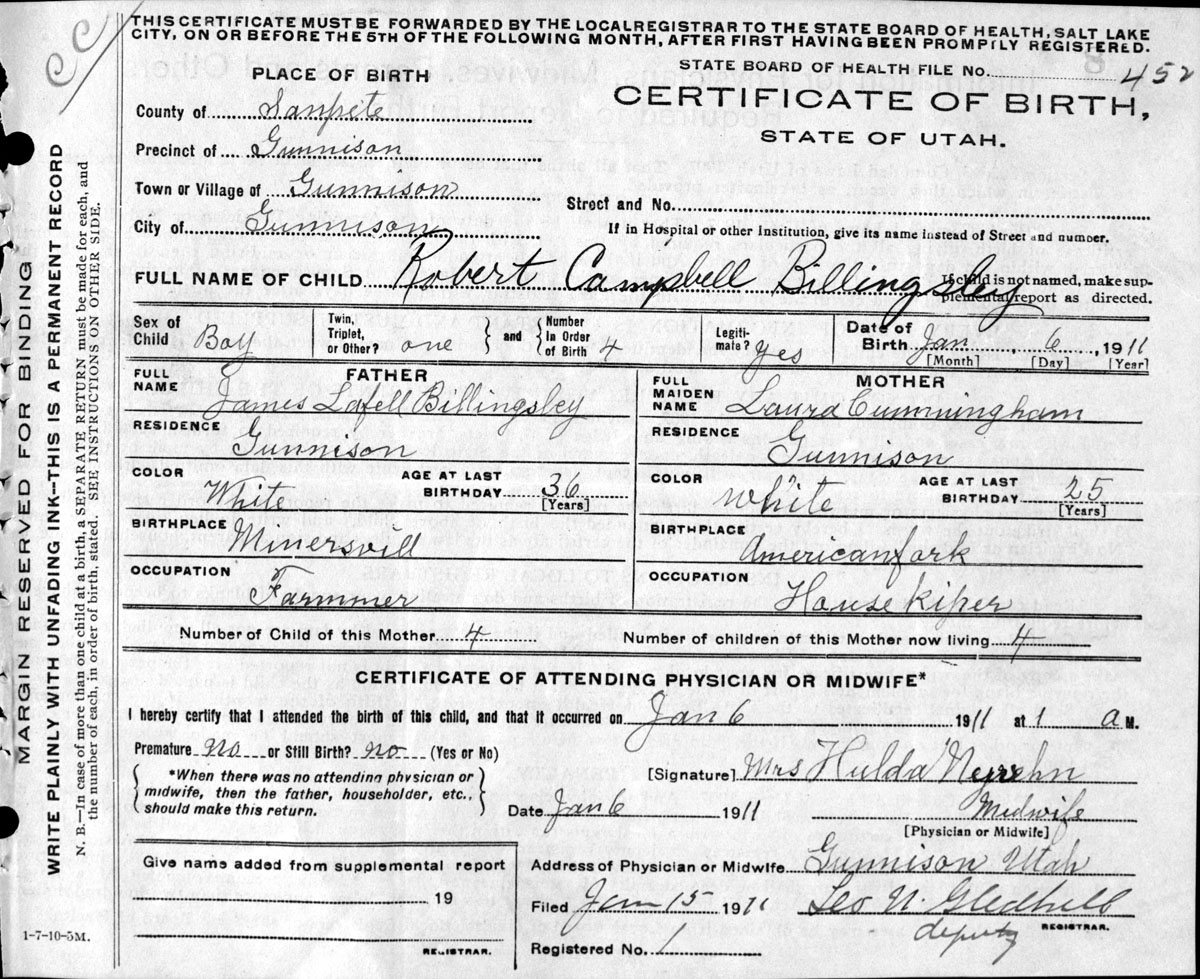 THIS CERTIFICATE MUST BE FORWARDED BY THE LOCAL REGISTRAR TO THE STATE BOARD OF HEALTH, SALT LAKE
CITY, ON OR BEFORE THE 5TH OF THE FOLLOWING MONTH, AFTER FIRST HAVING BEEN PROMPTLY REGISTERED.
PLACE OF BIRTH
STATE BOARD OF HEALTH FILE No. 452
CERTIFICATE OF BIRTH,
STATE OF UTAH.
County of Sanpete
Precinct of Gunnison
Town or Village of Gunnison
Street and No.
City of Gunnison
If in Hospital or other Institution, give its name instead of Street and number.
FULL NAME OF CHILD Robert Campbell Billingsley
If child is not named, make sup-
plemental report as directed.
Sex of Child Boy Twin, Triplet, or Other? one and Number In Order of Birth 4 Legiti-mate? yes Date of Birth Jan. 6, 1911
[Month] [Day] [Year]
FATHER MOTHER
FULL NAME James Lafell Billingsley FULL MAIDEN NAME Laura Cunningham
RESIDENCE Gunnison RESIDENCE Gunnison
COLOR White AGE AT LAST BIRTHDAY 36 [Years] COLOR White AGE AT LAST BIRTHDAY 25 [Years]
BIRTHPLACE Minersvill BIRTHPLACE Americanfork
OCCUPATION Farmmer OCCUPATION House kiper
Number of Child of this Mother 4 Number of children of this Mother now living 4
CERTIFICATE OF ATTENDING PHYSICIAN OR MIDWIFE*
I hereby certify that I attended the birth of this child, and that it occurred on Jan 6 1911 at 1 a M.
Premature no or Still Birth? no (Yes or No)
*When there was no attending physician or
midwife, then the father, householder, etc.,
should make this return.
[Signature] Mrs Hulda
Date Jan 6 1911 Midwife
[Physician or Midwife]
Give name added from supplemental report
19
REGISTRAR.
Address of Physician or Midwife Gunnison Utah
Filed Jan 15 1911 Leo N. Gledhill
deputy REGISTRAR.
Registered No. 1
1-7-10-5M.
MARGIN RESERVED FOR BINDING
WRITE PLAINLY WITH UNFADING INK--THIS IS A PERMANENT RECORD
N. B.—In case of more than one child at a birth, a SEPARATE RETURN must be made for each, and
the number of each, in order of birth, stated. SEE INSTRUCTIONS ON OTHER SIDE.